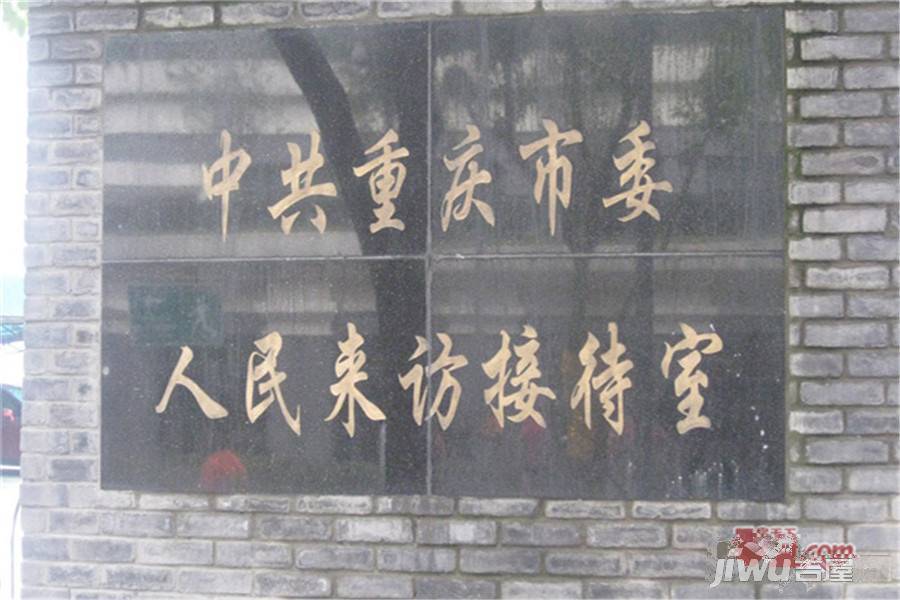 中共重庆市委
人民来访接待室
.com
jiwu吉屋